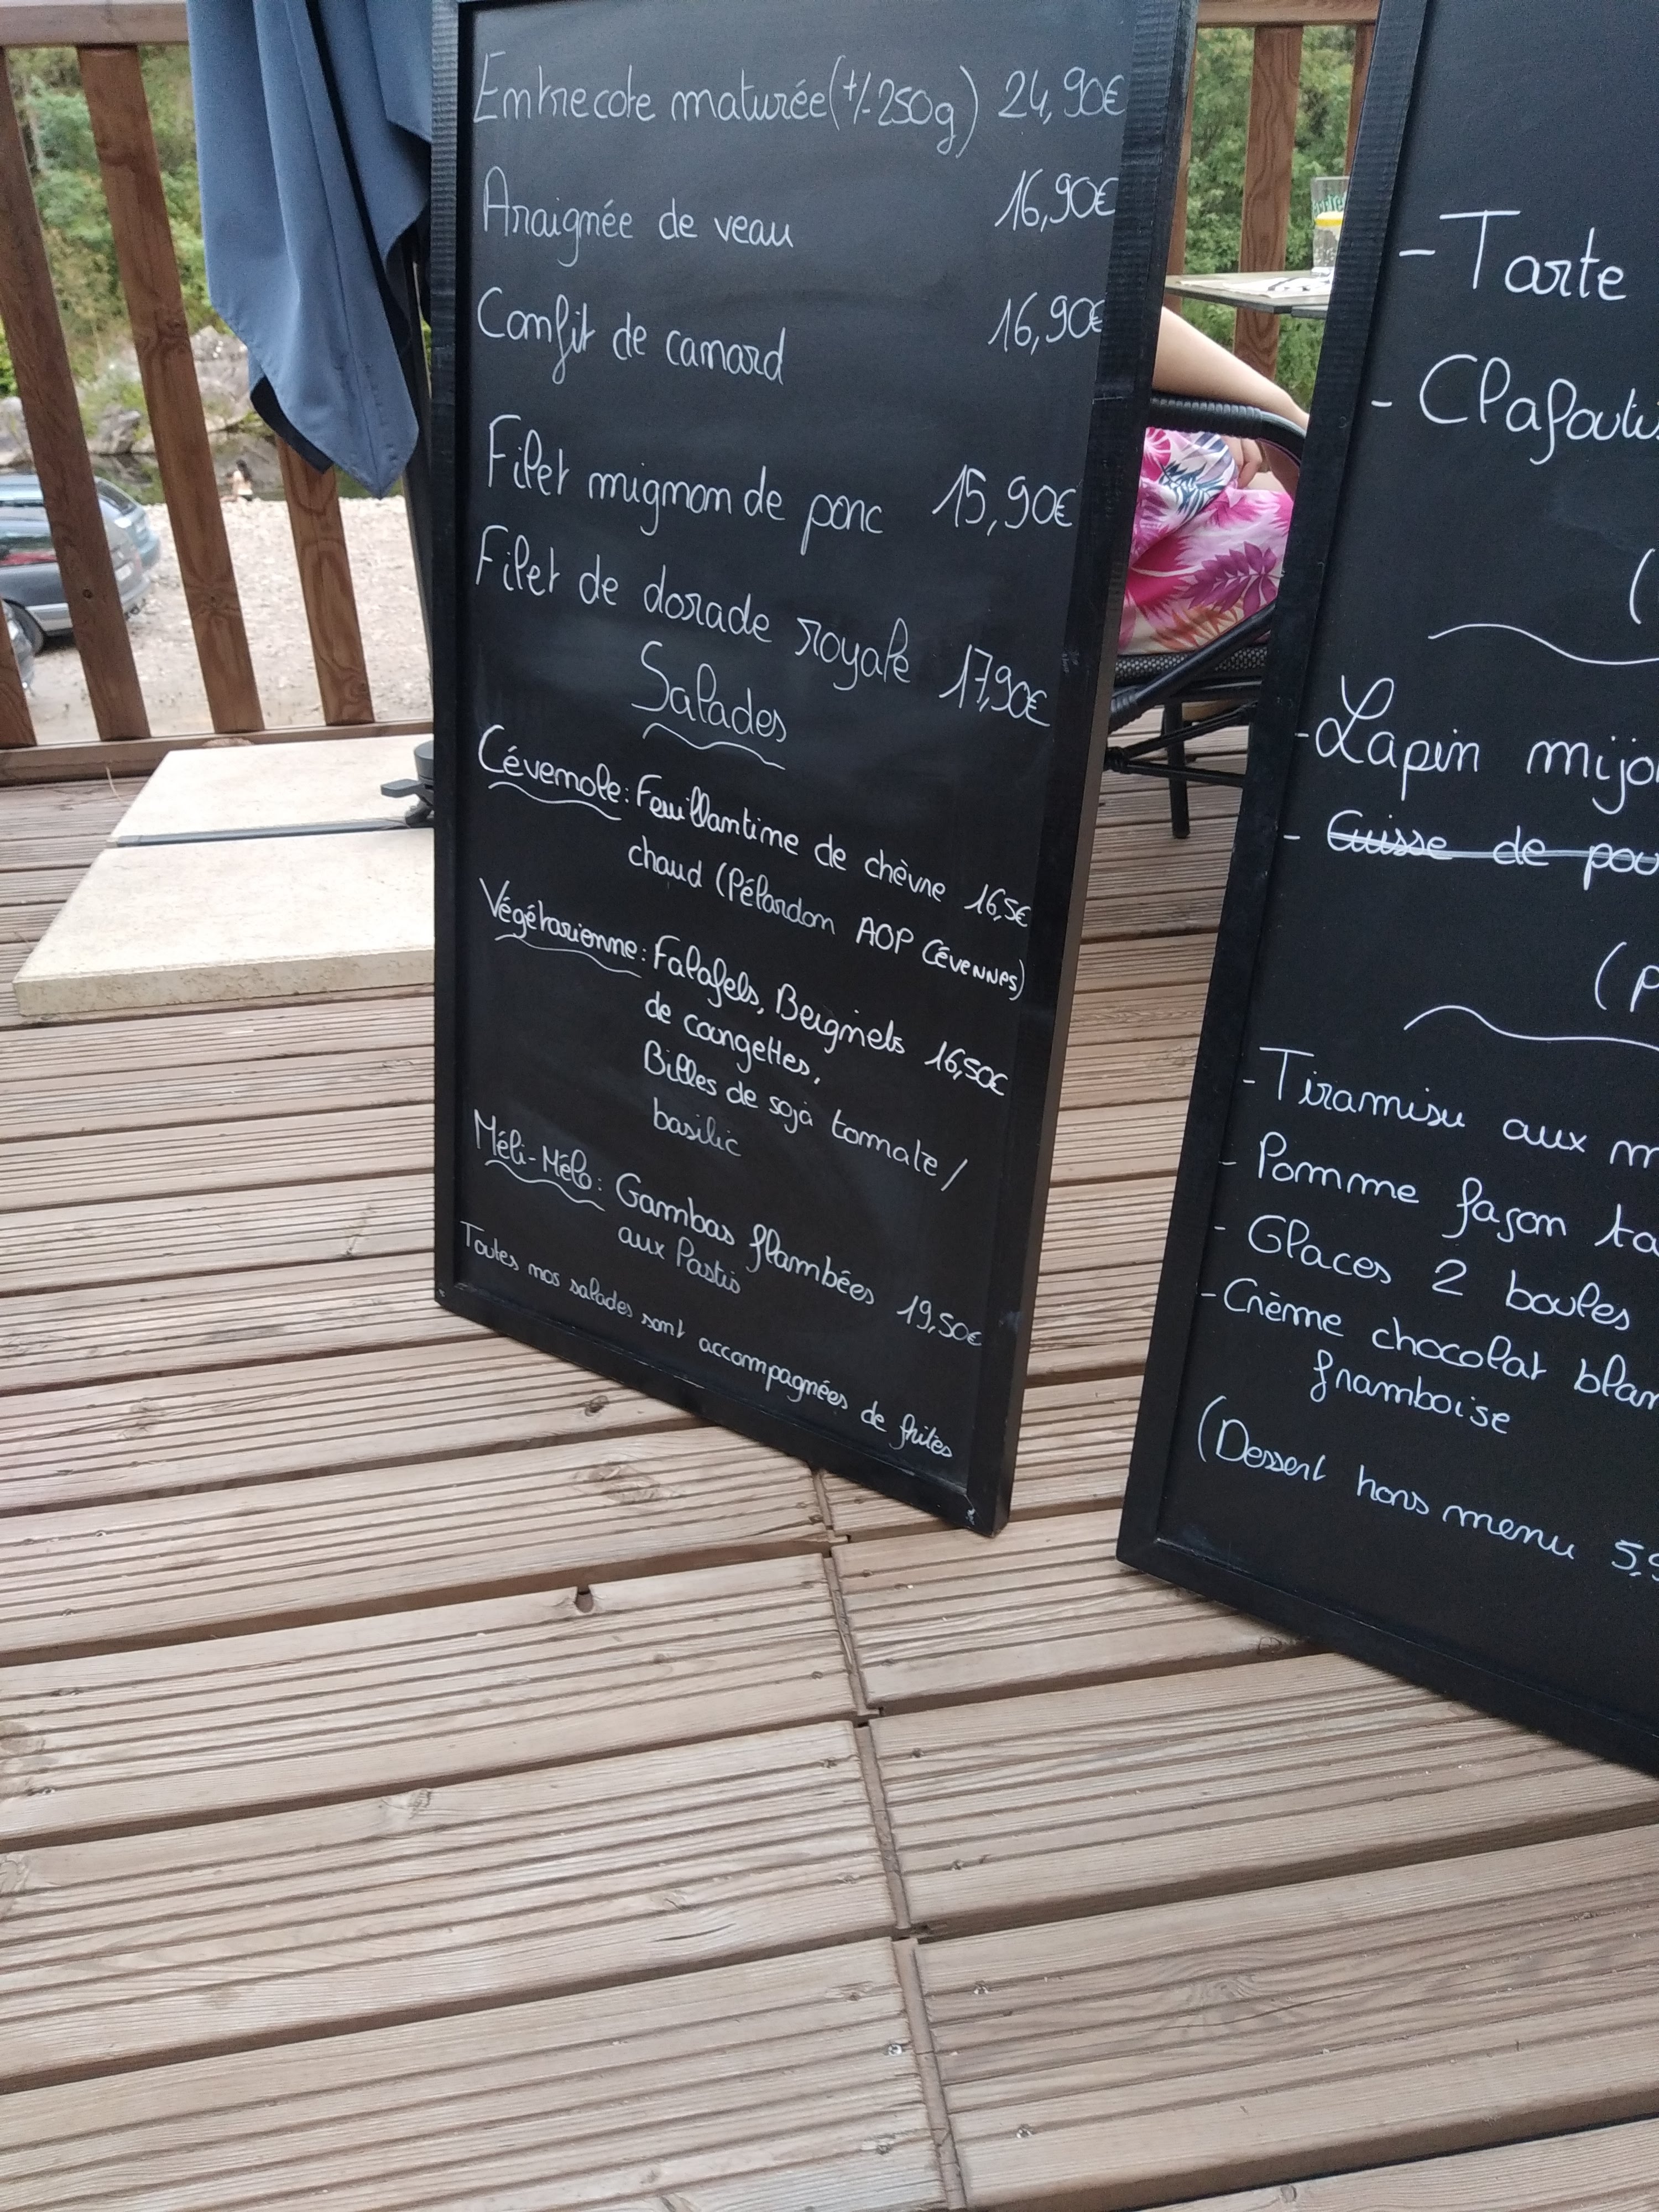 Entrecote maturée (+/- 250g) 24,90€
Araignée de veau 16,90€
Confit de canard 16,90€
Filet mignon de porc 15,90€
Filet de dorade royale 17,90€
Salades
Cévenole: Feuillantine de chèvre 16,5€
chaud (Pélardon AOP Cévennes)
Végétarienne: Falafels, Beignets 16,50€
de courgettes,
Billes de soja tomate/
basilic
Méli-Mélo: Gambas flambées 19,50€
aux Pastis
Toutes nos salades sont accompagnées de frites
- Tarte
- Clafoutis
(
- Lapin mijo
- Cuisse de pou
(p
- Tiramisu aux m
- Pomme façon ta
- Glaces 2 boules
- Crème chocolat blan
framboise
(Dessert hors menu 5,9